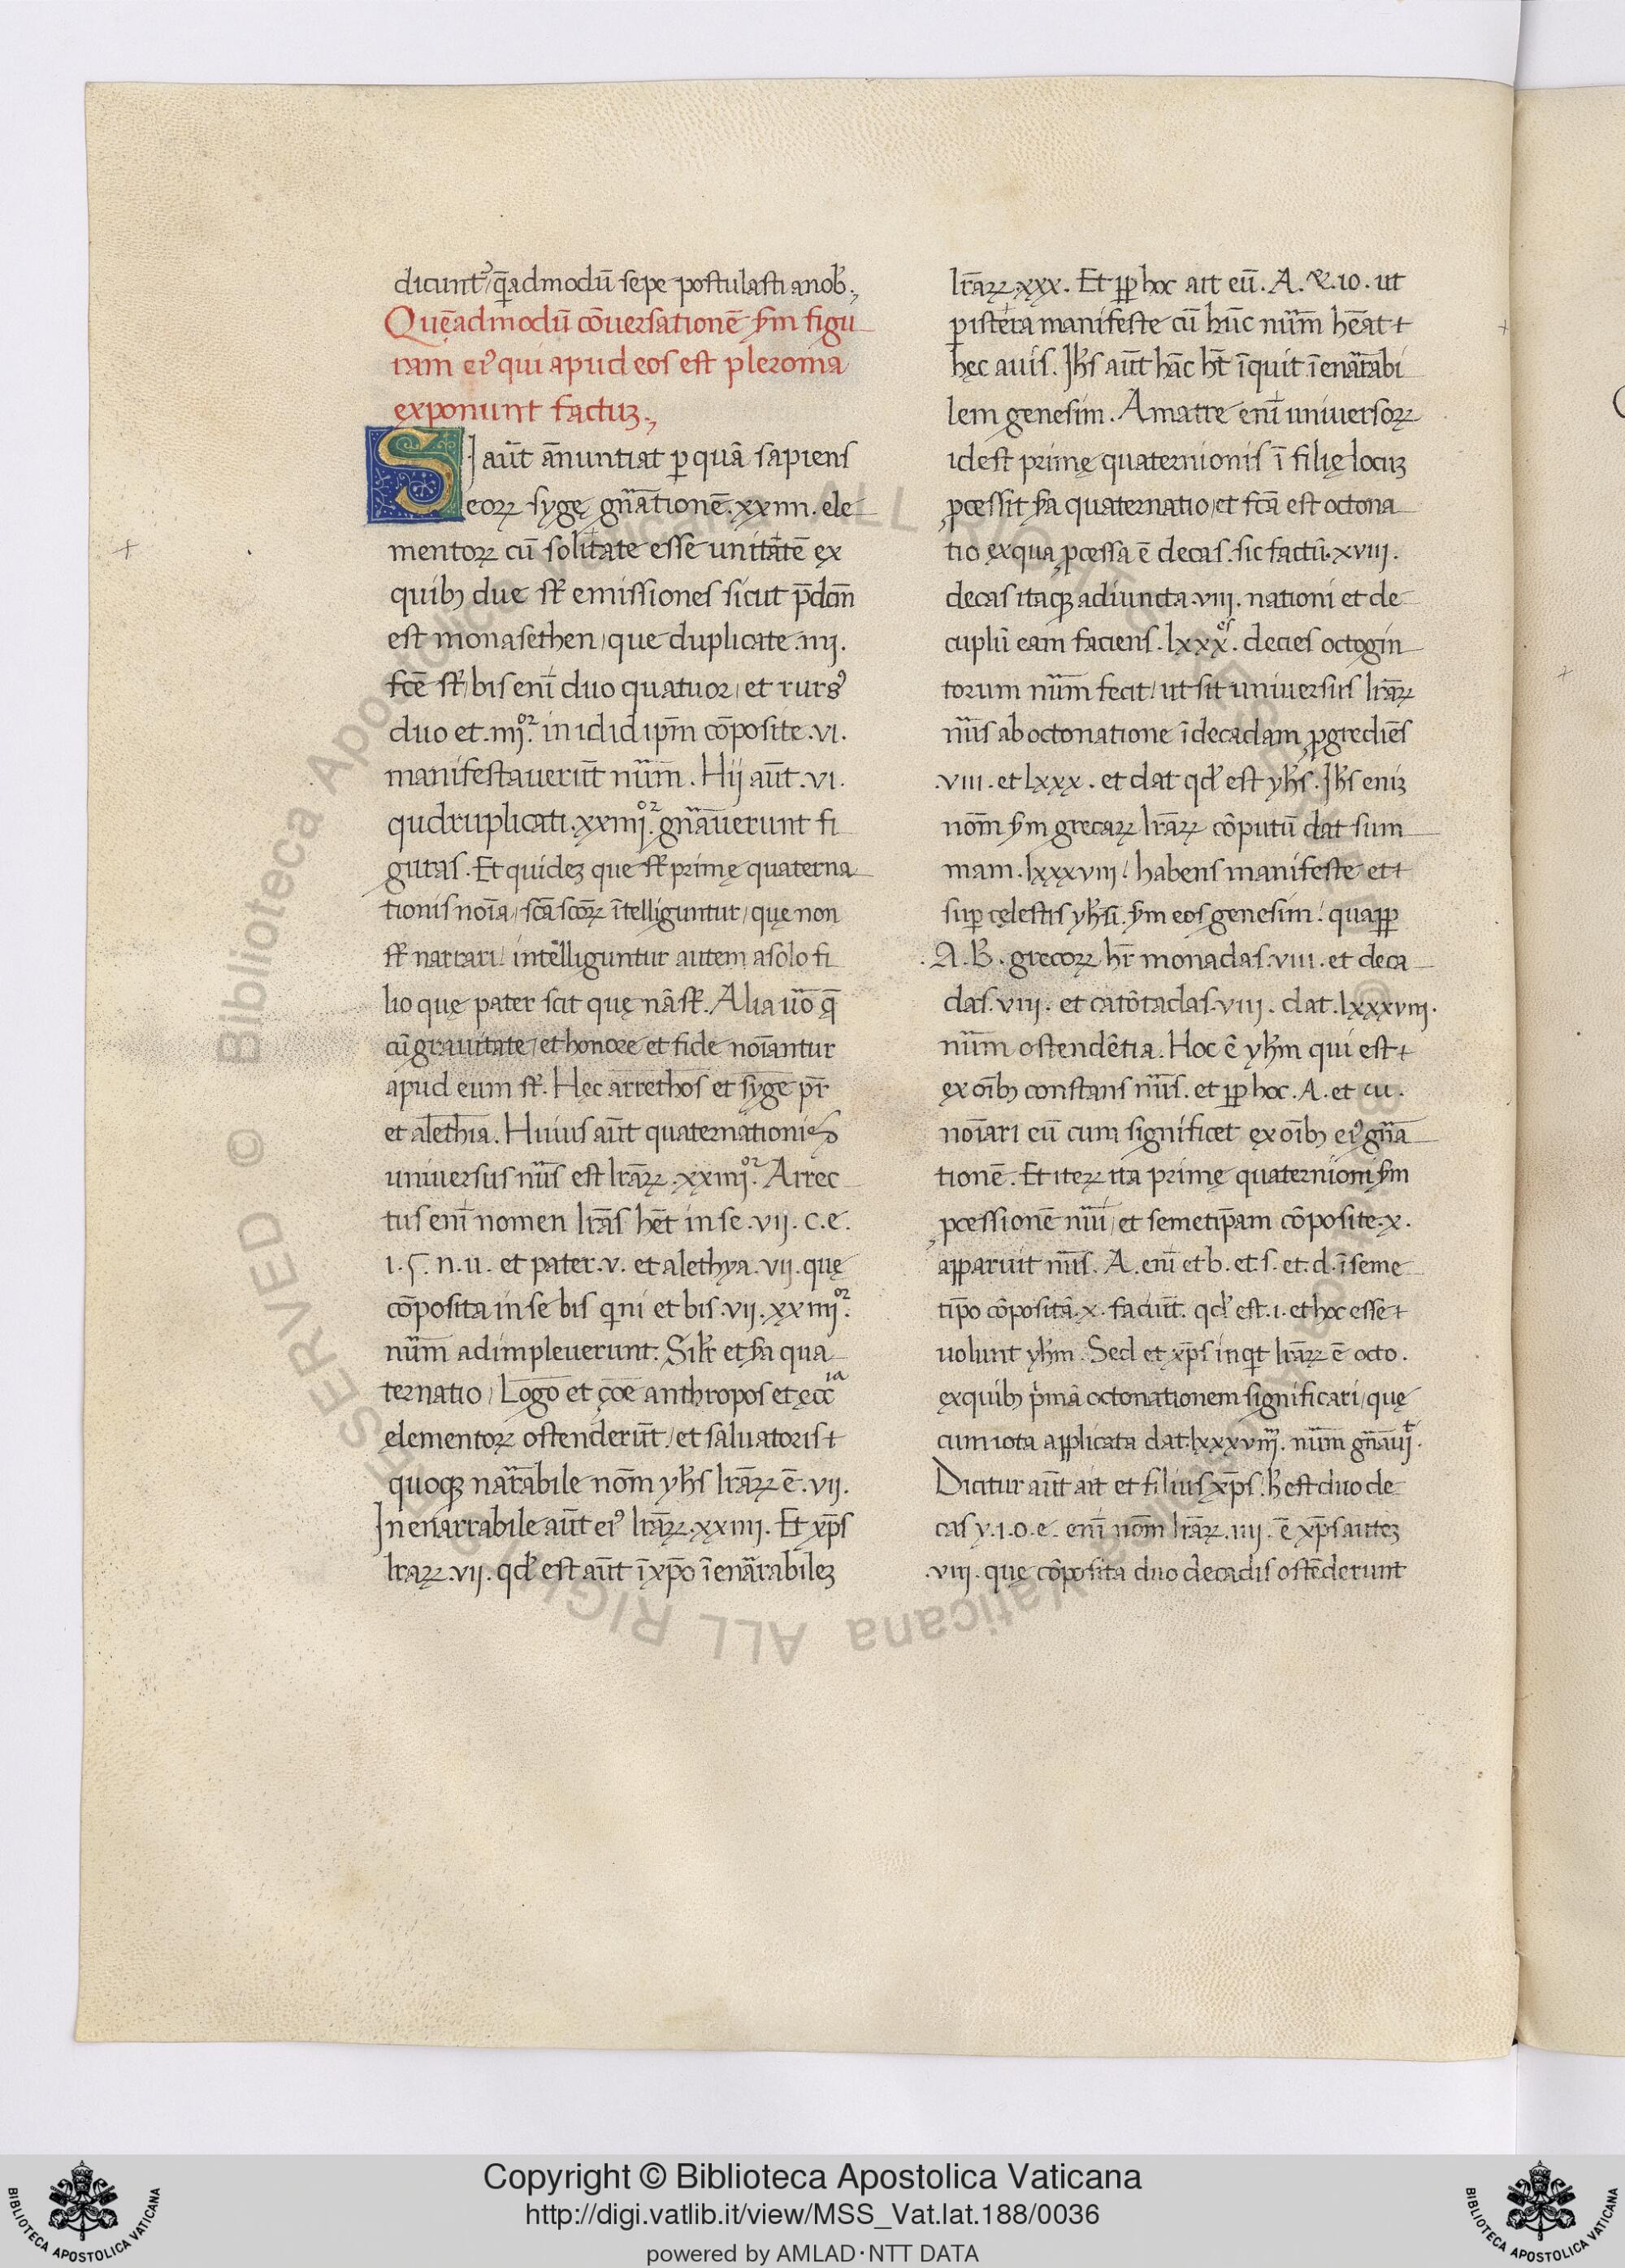 dicunt᾽/q̄admodū sepe postulasti a nob̵.,
Quēadmodū cōuersationē s̄m figu
ram ei᾽ qui apud eos est pleroma
exponunt factuꝫ.,
SI aūt ānuntiat ꝑ quā sapiens
eoꝝ sygę gn̄ationē .xxiiii. ele
mentoꝝ cū solitate esse unitatē ex
quibꝫ due st̄ emissiones sicut p̄dcm̄
est monasethen/que duplicate .iiij.
fcē st̄/bis eni duo quatuor/et rurs᾽
duo et .iiij.or in idid ip̄m cōposite .vi.
manifestauerūt nūm. Hij aūt .vi.
qudruplicati .xxiiij.or gn̄auerunt fi
guras. Et quideꝫ que st̄ primę quaterna
tionis noīa/scā scōꝝ ītelliguntur/quę non
st̄ narrari/intelliguntur autem a solo fi
lio quę pater scit quę nā st̄. Alia uō q̄
cū grauitate/et honore et fide noīantur
apud eum st̄. Hęc arrethos et syge pr̄
et alethia. Huius aūt quaternationis
uniuersus nūs est lrāꝝ .xxiiij.or Arrec
tus eni nomen lrās hēt in se .vij. c.e.
i. ς. n.u. et pater .v. et alethya .vij. quę
cōposita in se bis q̇ni et bis .vij. xxiiij.or
nūm adimpleuerunt. Silr̄ et s̄a qua
ternatio/Logo et çoe anthropos et ęcc̄ia
elementoꝝ ostenderūt/et saluatoris +
quoqꝫ narrabile nōm yh̄s lrāꝝ ē .vij.
Inenarrabile aūt ei᾽ lrāꝝ .xxiiij. Et xp̄s
lraꝝ .vij. qd̵ est aūt ī xp̄o īenarrabileꝫ
lrāꝝ .xxx. Et ꝓp hoc ait eū. A. &. io. ut
ꝑistera manifeste cū hūc nūm hēat +
hęc auis. Ih̄s aūt hāc ht̄ īquit īenarrabi
lem genesim. A matre eni uniuersoꝝ
id est primę quaternionis ī filię locuꝫ
ꝓcessit s̄a quaternatio/et fcā est octona
tio ex qua ꝓcessa ē decas. sic factū .xviii.
decas itaqꝫ adiuncta .viij. nationi et de
cuplū eam faciens .lxxx.es decies octogin
torum nūm fecit/ut sit uniuersus lrāꝝ
nūs ab octonatione ī decadam ꝓgrediēs
.viii. et lxxx. et dat qd̵ est yh̄s. Ih̄s eniꝫ
nōm s̄m grecaꝝ lrāꝝ cōputū dat sum
mam .lxxxviii/habens manifeste et +
suꝑ cęlestis yh̄si. s̄m eos genesim/quaꝓp
.A.B. grecoꝝ hr̄ monadas .viii. et deca
das .viij. et catōtadas .viij. dat .lxxxviij.
nūm ostendētia. Hoc ē yh̄m qui est +
ex oībꝫ constans nūs. et ꝓp hoc .A. et ω.
noīari eū cum significet ex oībꝫ ei᾽ gn̄a
tionē. Et iteꝝ ita primę quaternioni s̄m
ꝓcessionē nūi/et semetip̄am cōposite .x.
apparuit nūs. A. eni et b. et .s. et .d. ī seme
tip̄o cōposita .x. faciūt. qd̵ est .i. et hoc esse +
uolunt yh̄m. Sed et xp̄s inq̇t lrāꝝ ē octo.
ex quibꝫ ṗmā octonationem significari/quę
cum iota applicata dat .lxxxviiij. nūm gn̄auit.
Dicitur aūt ait et filius xp̄s. h̵ est duo de
cas y.i.o.e. eni nōm lrāꝝ .iiij. ē xp̄s auteꝫ
.viij. quę cōposita duo decadis ostēderunt
Copyright © Biblioteca Apostolica Vaticana
http://digi.vatlib.it/view/MSS_Vat.lat.188/0036
powered by AMLAD·NTT DATA
BIBLIOTECA APOSTOLICA VATICANA
BIBLIOTECA APOSTOLICA VATICANA